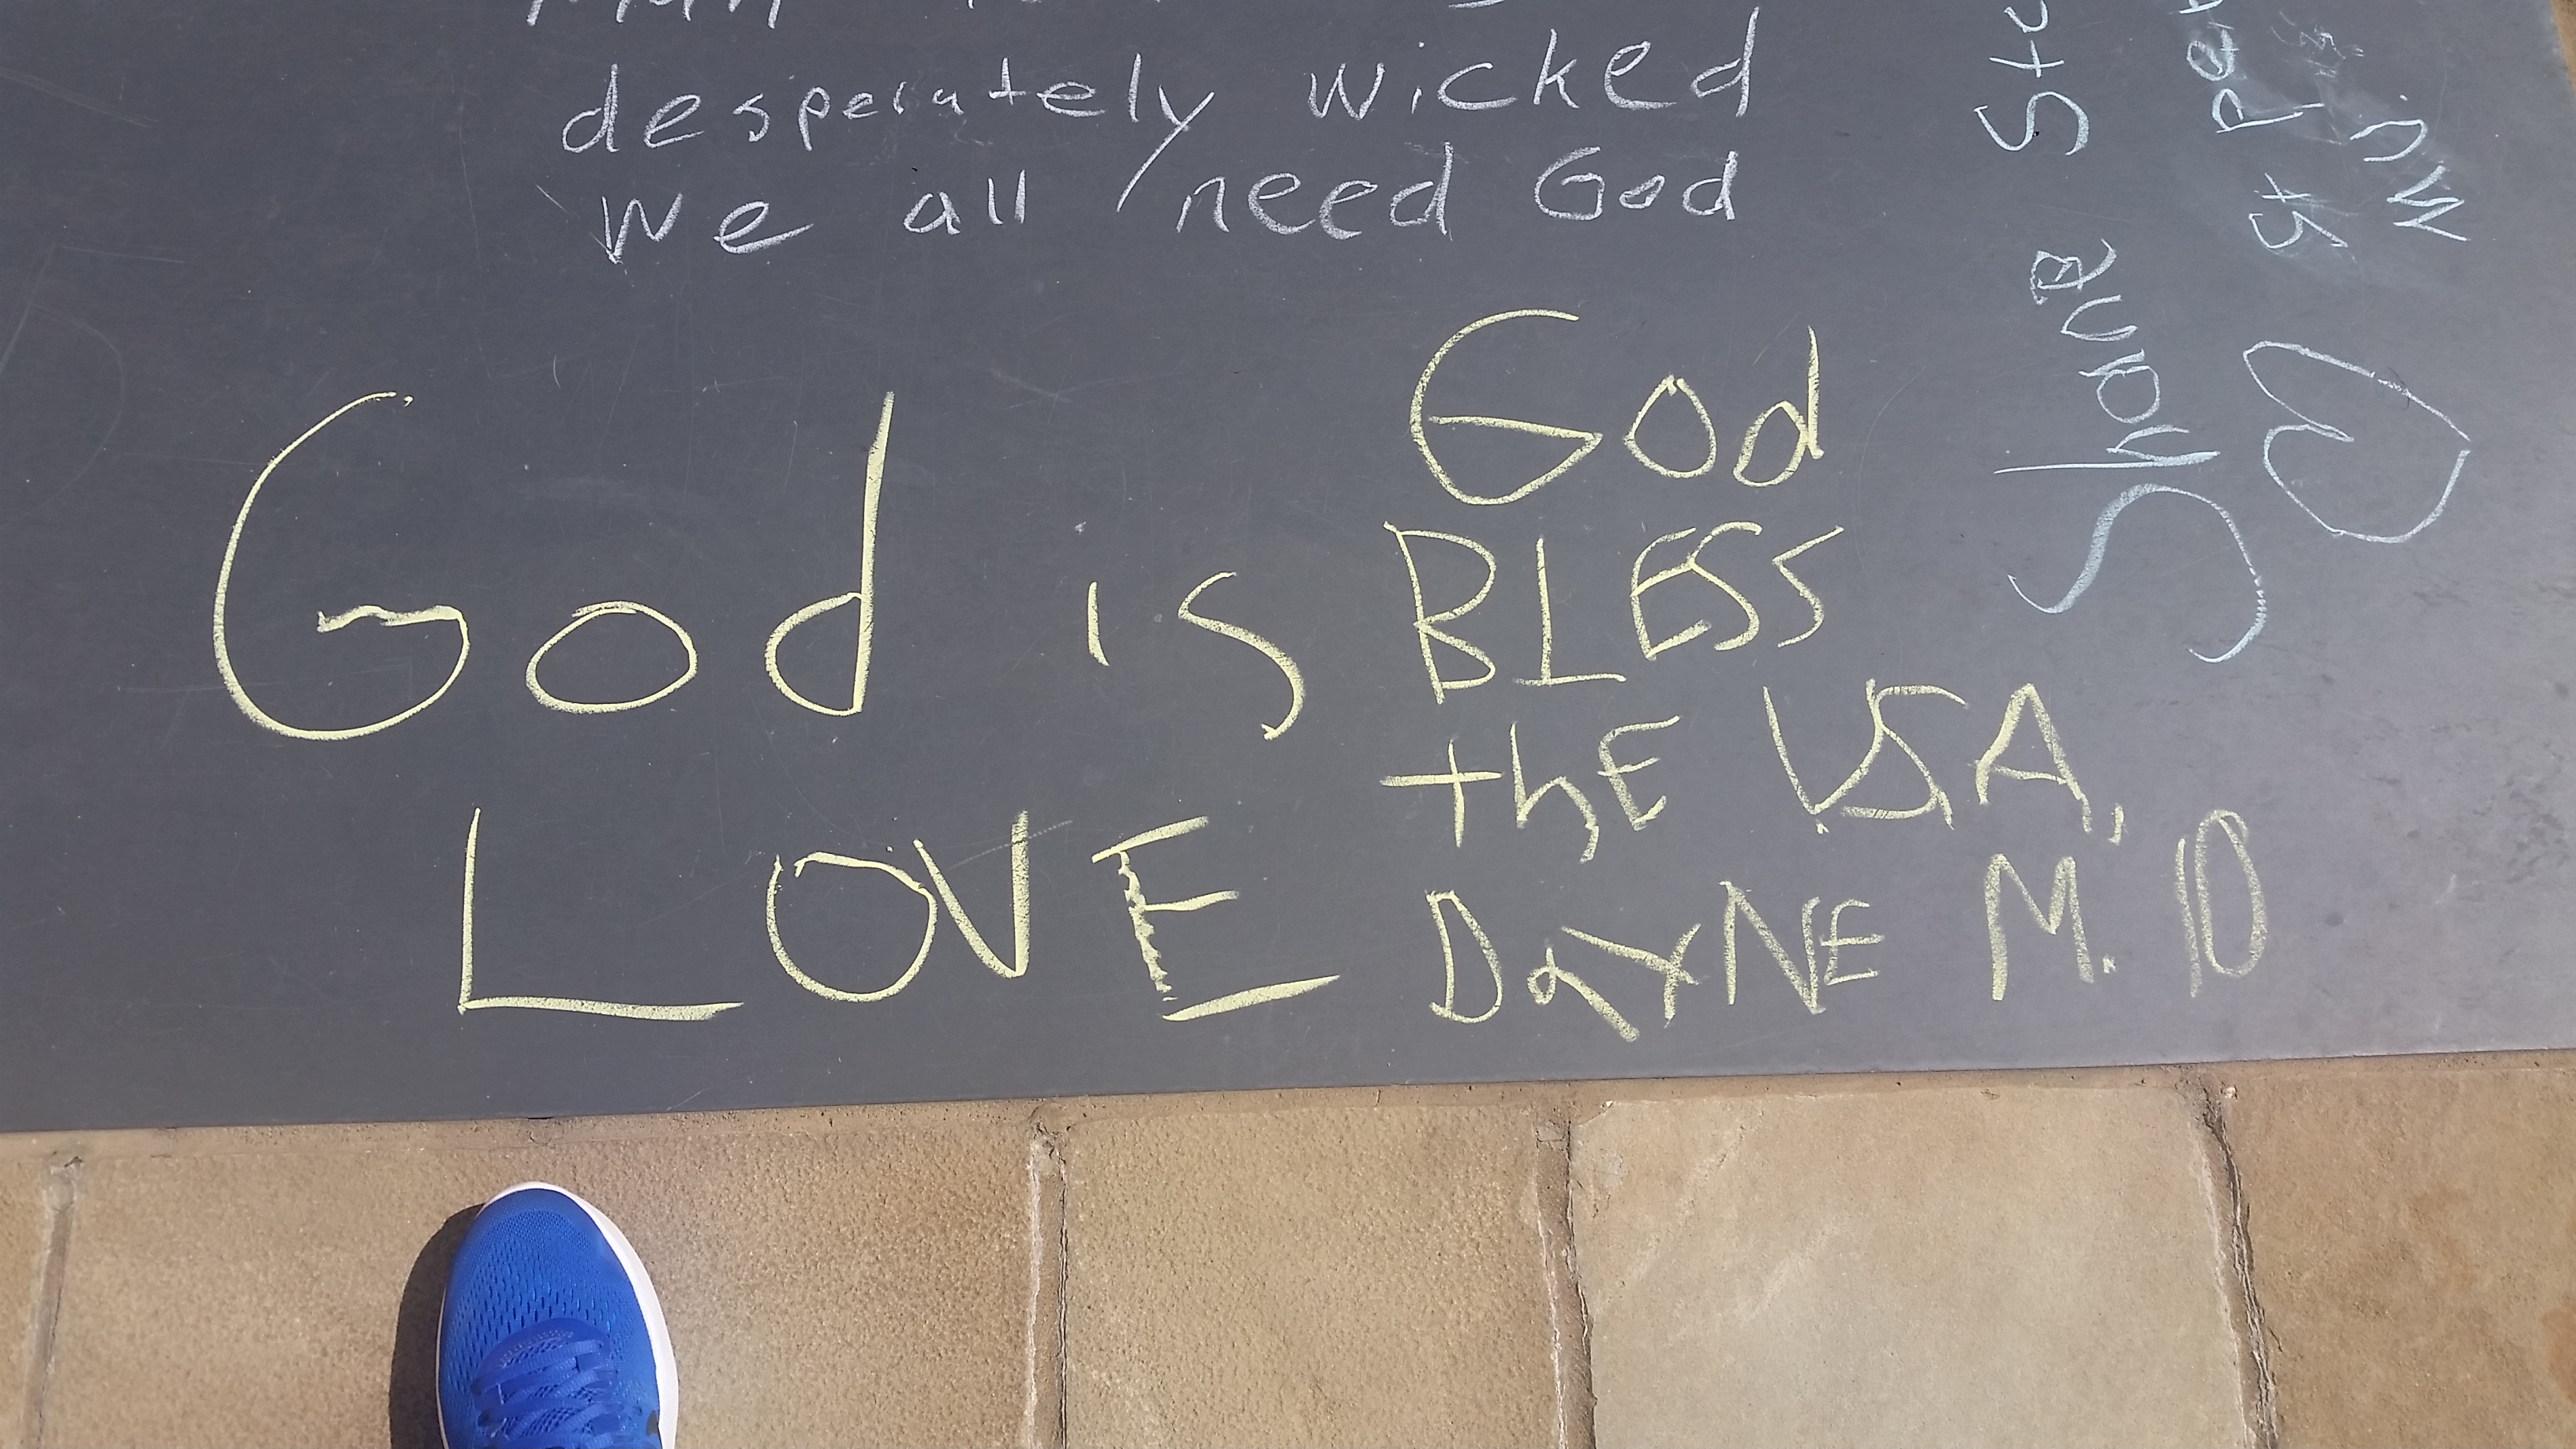 desperately wicked
we all need God
God is
LOVE
God
BLESS
thE USA,
DaYNE M. 10
Shane